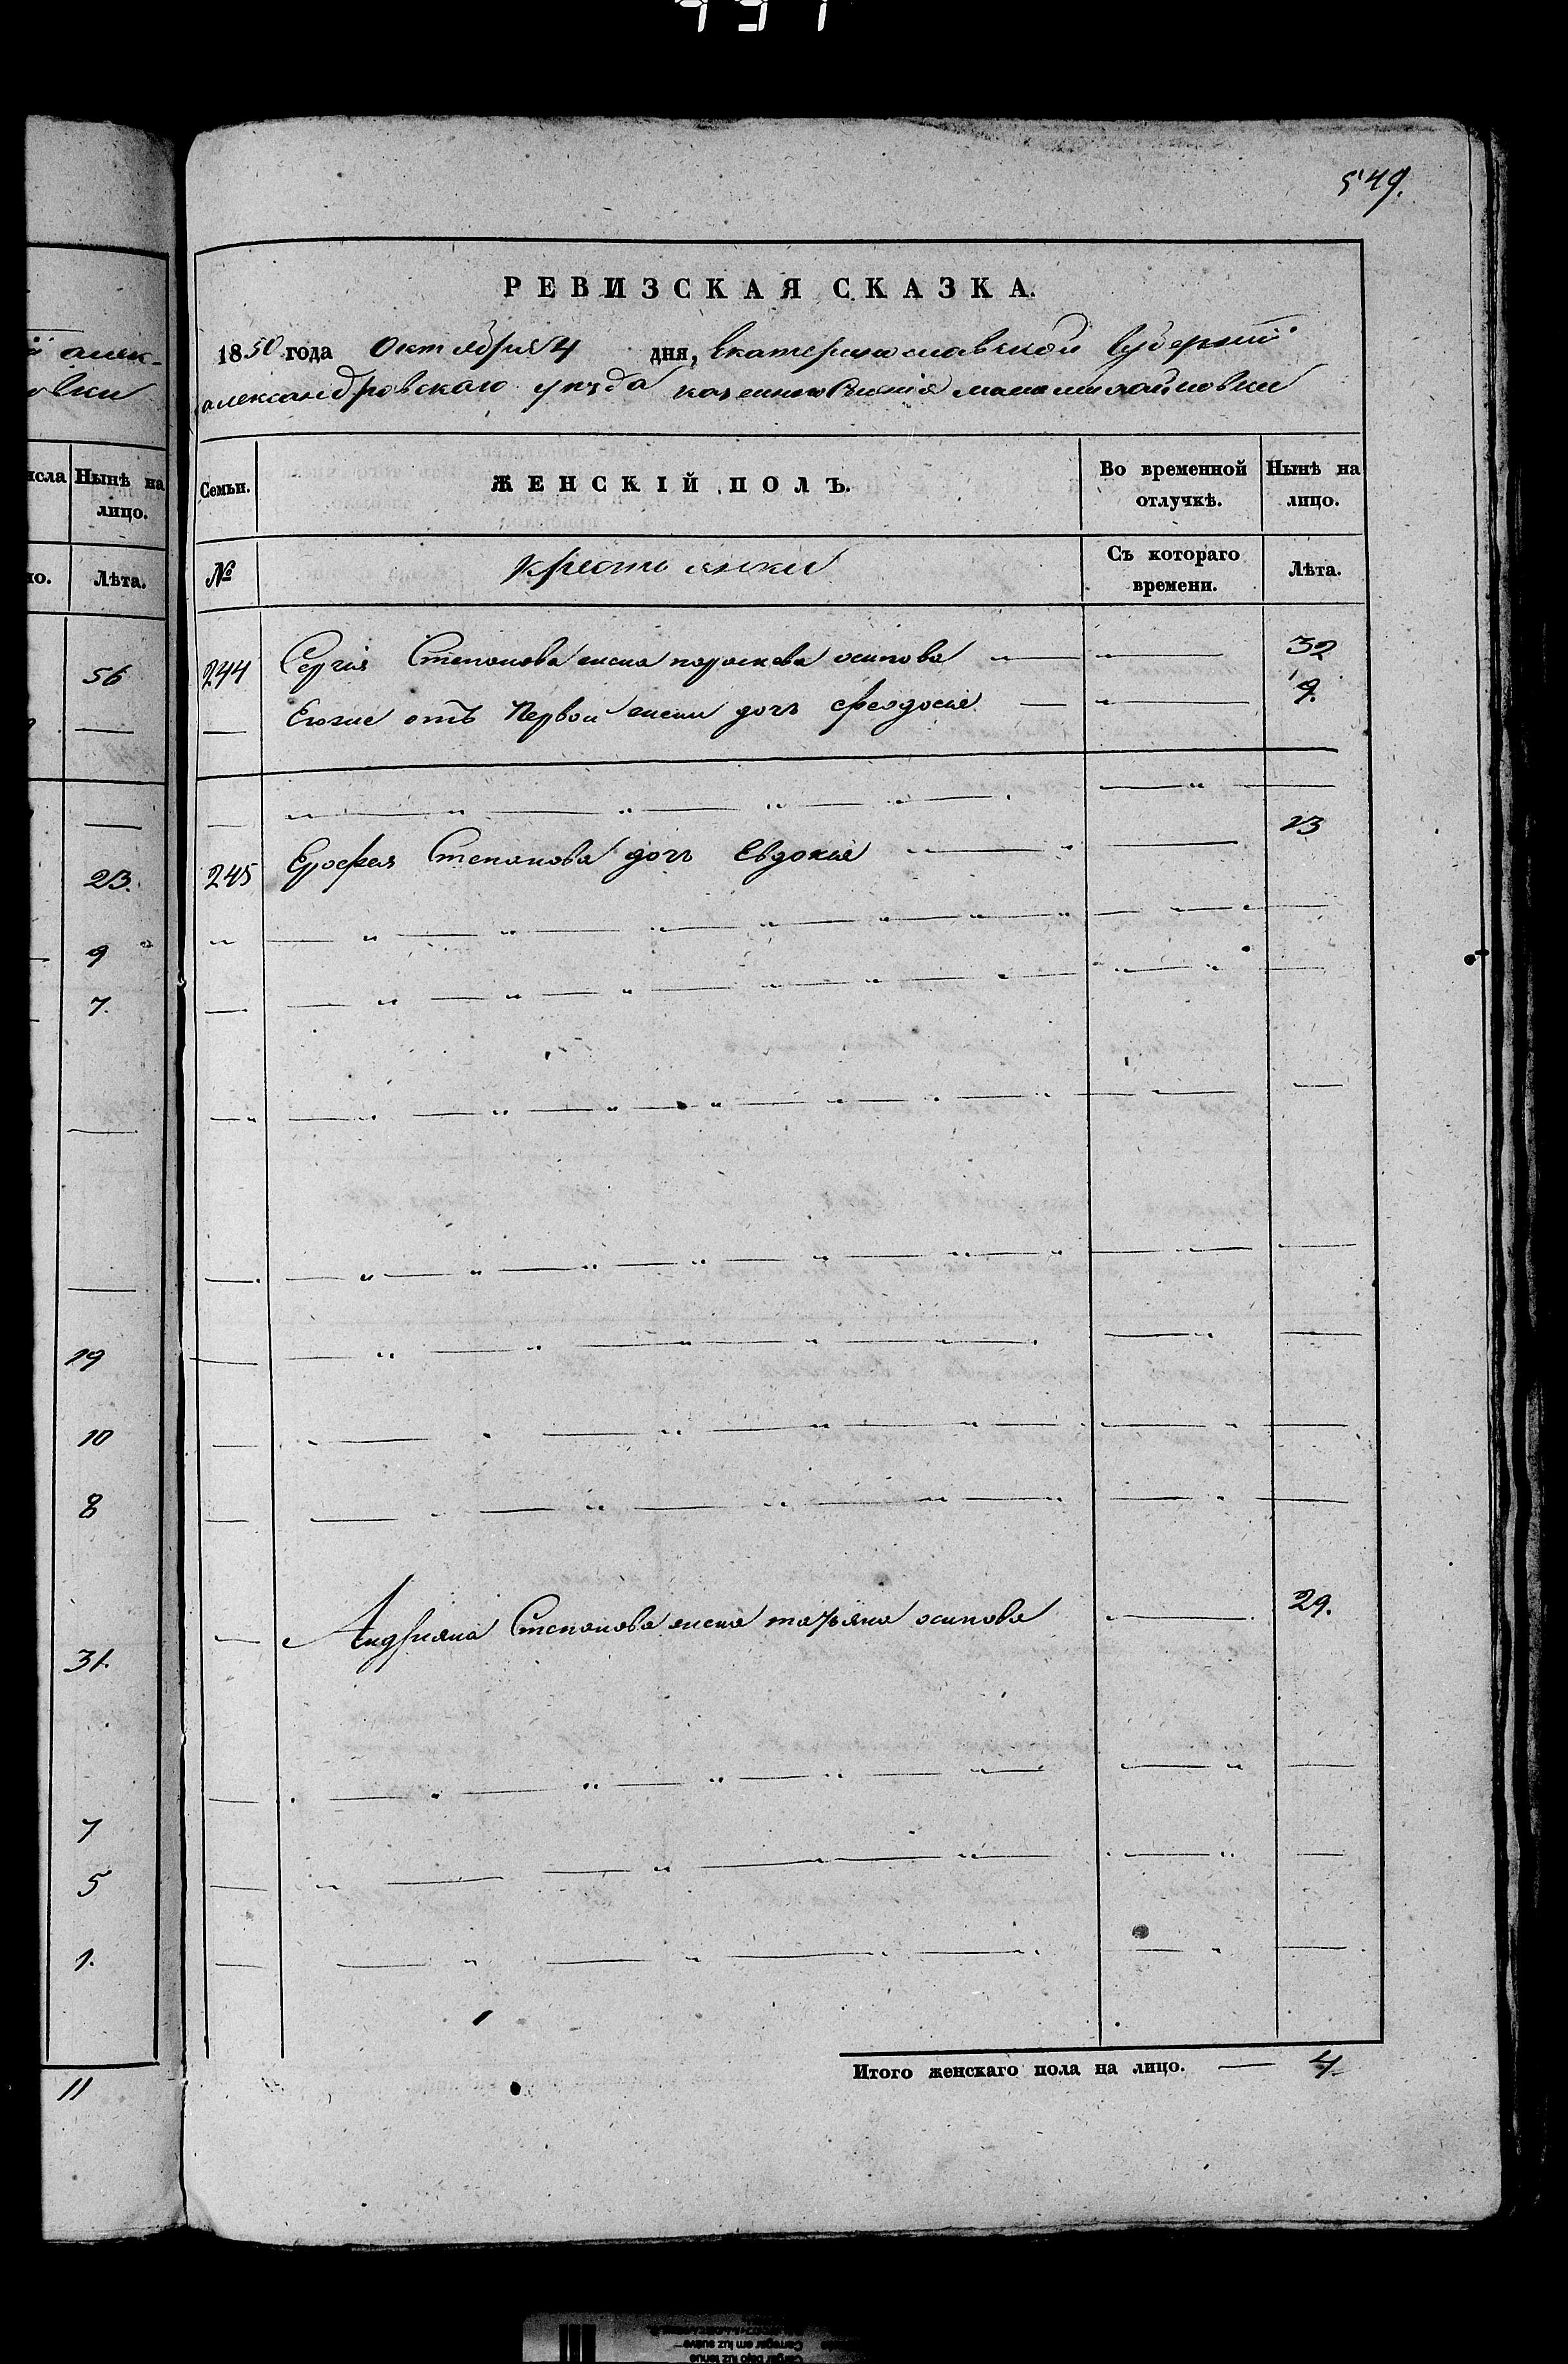 549.
алек-
вки
исла
Нынѣ на
лицо.
но.
Лѣта.
56
23.
9
7.
19
10
8
31.
7
5
1.
11
РЕВИЗСКАЯ СКАЗКА.
1850 года Октября 4 дня, Екатеринославской Губернии
александровскаго уезда казенного маломихайловки
Семьи.
ЖЕНСКІЙ ПОЛЪ.
Во временной
отлучкѣ.
Нынѣ на
лицо.
№
крестьянки
Съ котораго
времени.
Лѣта.
244 Сергія Степанова жена параскева осипова 32
Егоже отъ Первой жены дочь феодосія 9.
245 Ерофея Степанова дочь Евдокія 23
Андрияна Степанова жена татьяна осипова 29.
Итого женскаго пола на лицо. 4